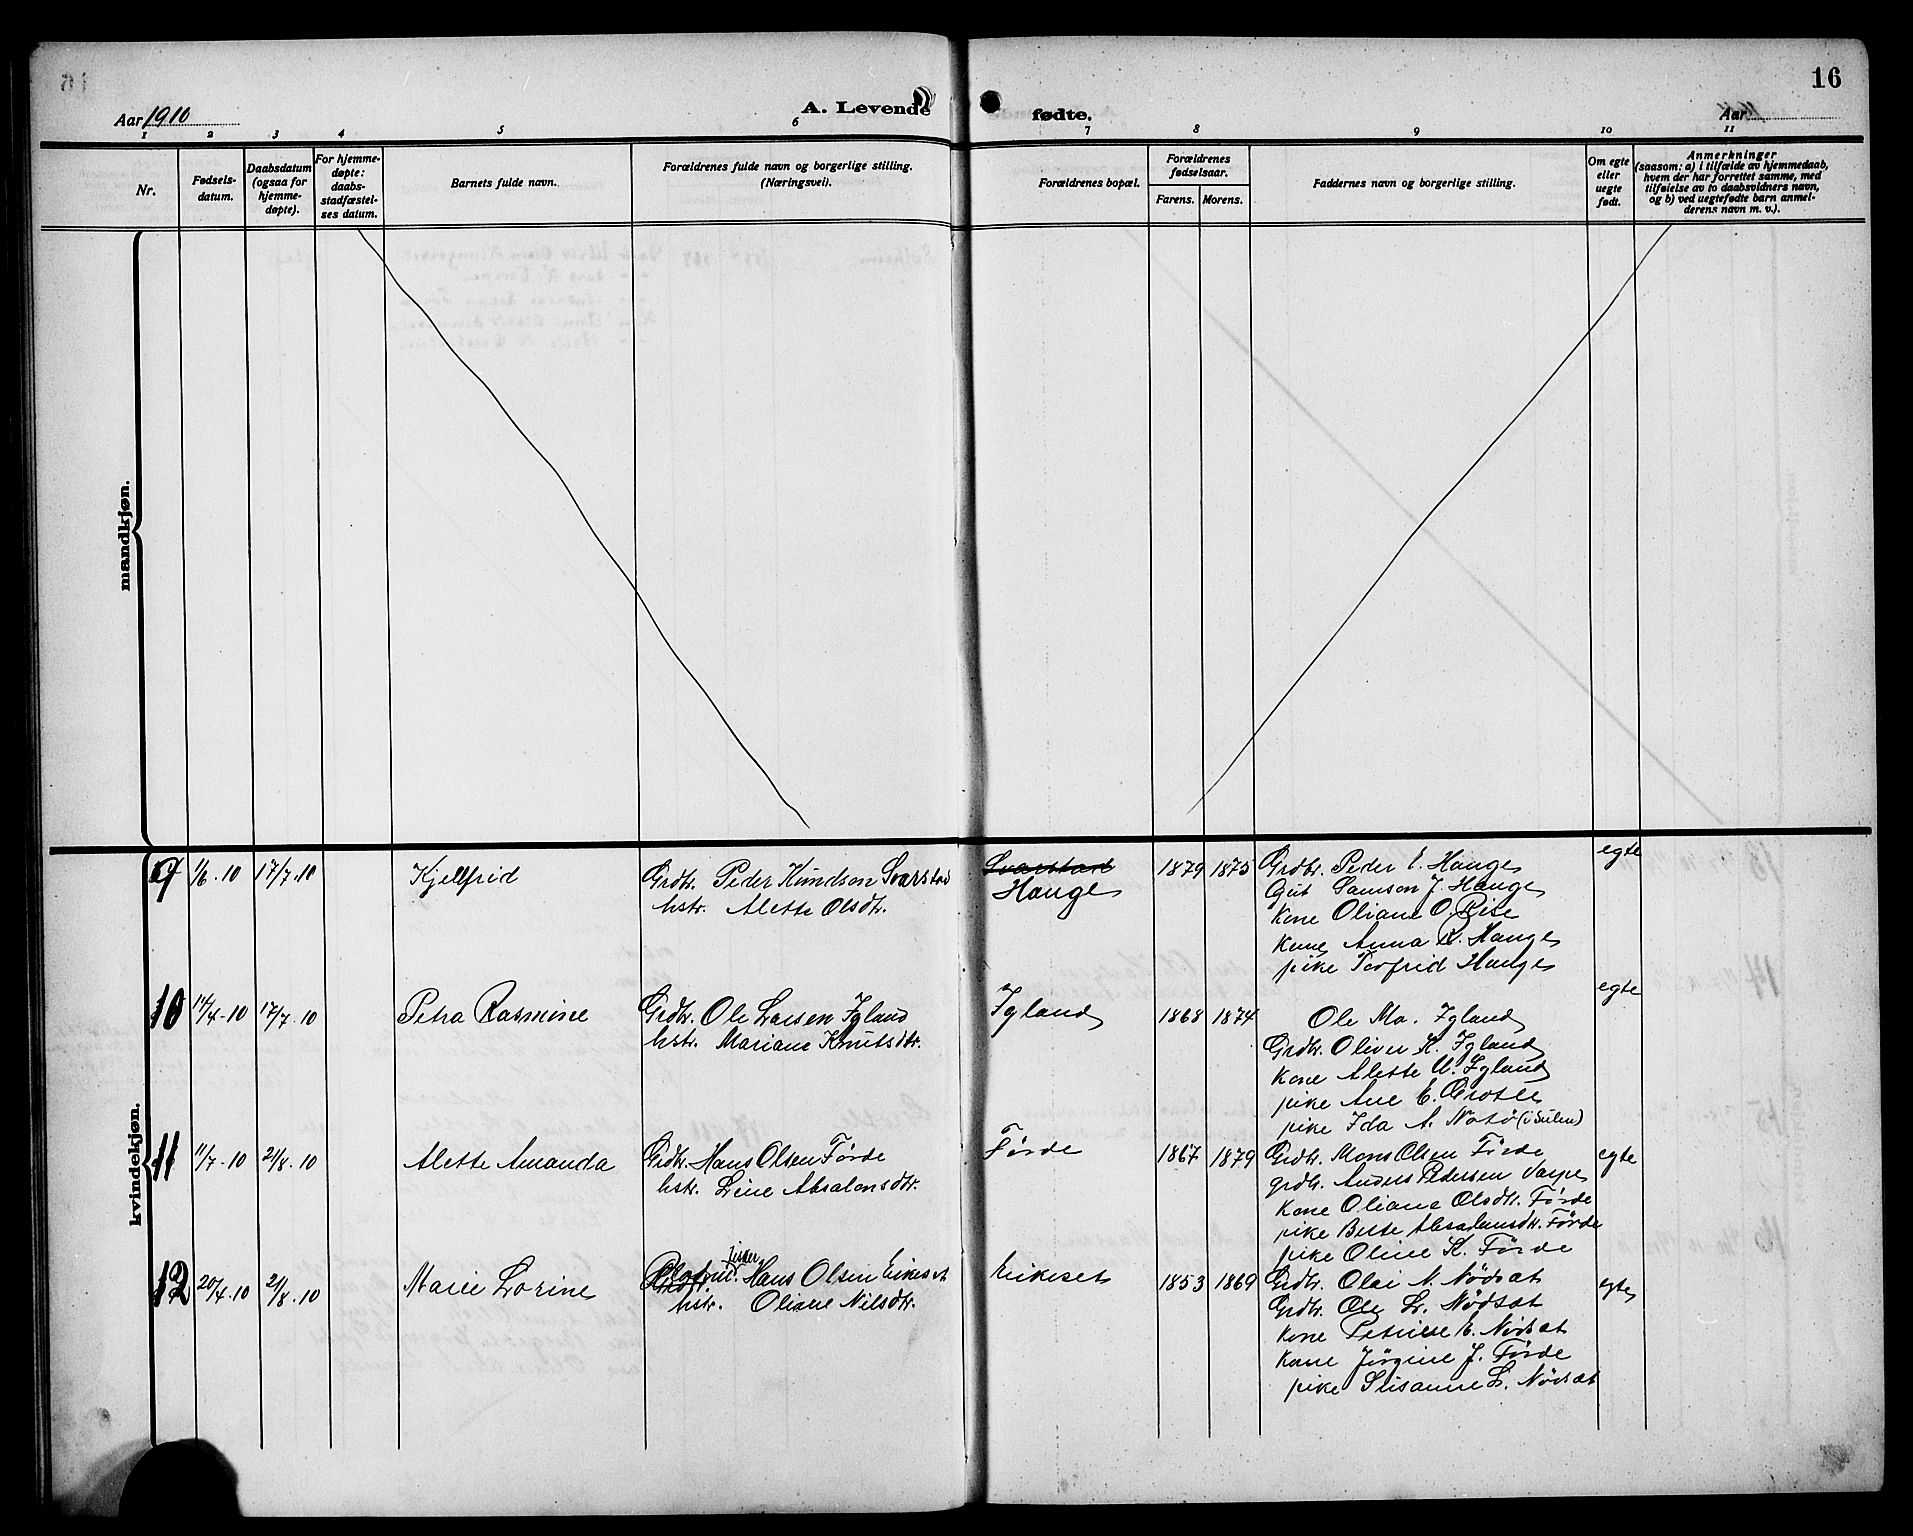 16
Aar 1910
A. Levende
fødte.
Aar
1 2 3 4 5 6 7 8 9 10 11
Nr.
Fødsels-
datum.
Daabsdatum
(ogsaa for
hjemme-
døpte).
For hjemme-
døpte:
daabs-
stadfæstel-
ses datum.
Barnets fulde navn.
Forældrenes fulde navn og borgerlige stilling.
(Næringsvei).
Forældrenes bopæl.
Forældrenes
fødselsaar.
Farens. Morens.
Faddernes navn og borgerlige stilling.
Om egte
eller
uegte
født.
Anmerkninger
(saasom: a) i tilfælde av hjemmedaab,
hvem der har forrettet samme, med
tilføielse av to daabsvidners navn,
og b) ved uegtefødte barn anmel-
derens navn m. v.).
mandkjøn.
kvindekjøn.
9 1/6.10 17/7.10 Kjellfrid
Grdbr. Peder Kundson Svarstad
hstr. Alette Olsdtr.
Svarstad
Hauge
1879 1875
Grdbr. Peder E. Hauge
Gut Samson J. Hauge
Kone Oliane O. Rise
Kone Anna R. Hauge
pike Torfrid Hauge
egte
10 14/4.10 17/7.10 Petra Rasmine
Grdbr. Ole Larsen Igland
hstr. Mariane Knutsdtr.
Igland
1868 1874
Ole Ma. Igland
Grdbr. Oliver K. Igland
Kone Alette U. Igland
pike Ane E. Grotle
pike Ida A. Notø (i Sulen)
egte
11 11/7.10 21/8.10 Alette Amanda
Grdbr. Hans Olsen Førde
hstr. Line Absalonsdtr.
Førde
1867 1879
Grdbr. Mons Olsen Førde
grdbr. Anders Pedersen
Kone Oliane Olsdtr. Førde
pike Berte Absalonsdtr. Førde
pike Oline K. Førde
egte
12 20/4.10 21/8.10 Marie Lorine
Hans Olsen Eikeset
hstr. Oliane Nilsdtr.
Eikeset
1853 1869
Grdbr. Olai N. Nödset
Grdbr. Ole L. Nödset
Kone Petrine E. Nödset
Kone Jørgine J. Førde
pike Susanne L. Nödset
egte